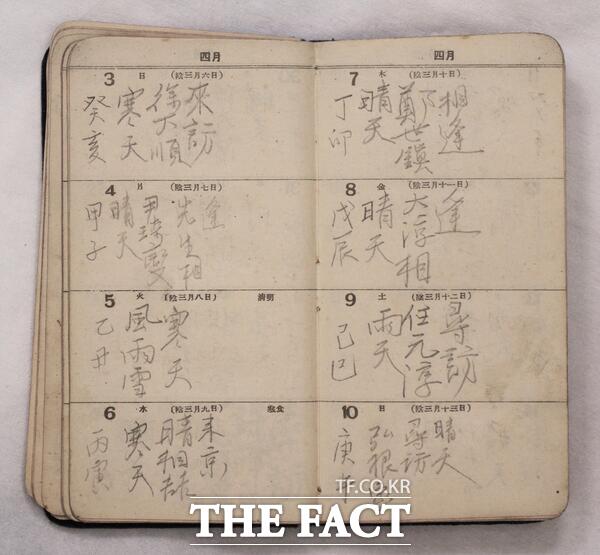 四月
3 日 (陰三月六日)
癸亥
寒天
徐大順
來訪
4 月 (陰三月七日)
甲子
晴天
先生相
逢
5 火 (陰三月八日) 淸明
乙丑
風雨雪
寒天
6 水 (陰三月九日) 寒食
丙寅
寒天
來京
四月
7 木 (陰三月十日)
丁卯
晴天
鄭世鎭
相逢
8 金 (陰三月十一日)
戊辰
晴天
大淳相
逢
9 土 (陰三月十二日)
己巳
雨天
任元淳
尋訪
10 日 (陰三月十三日)
庚午
尋訪
晴天
TF.CO.KR
THE FACT